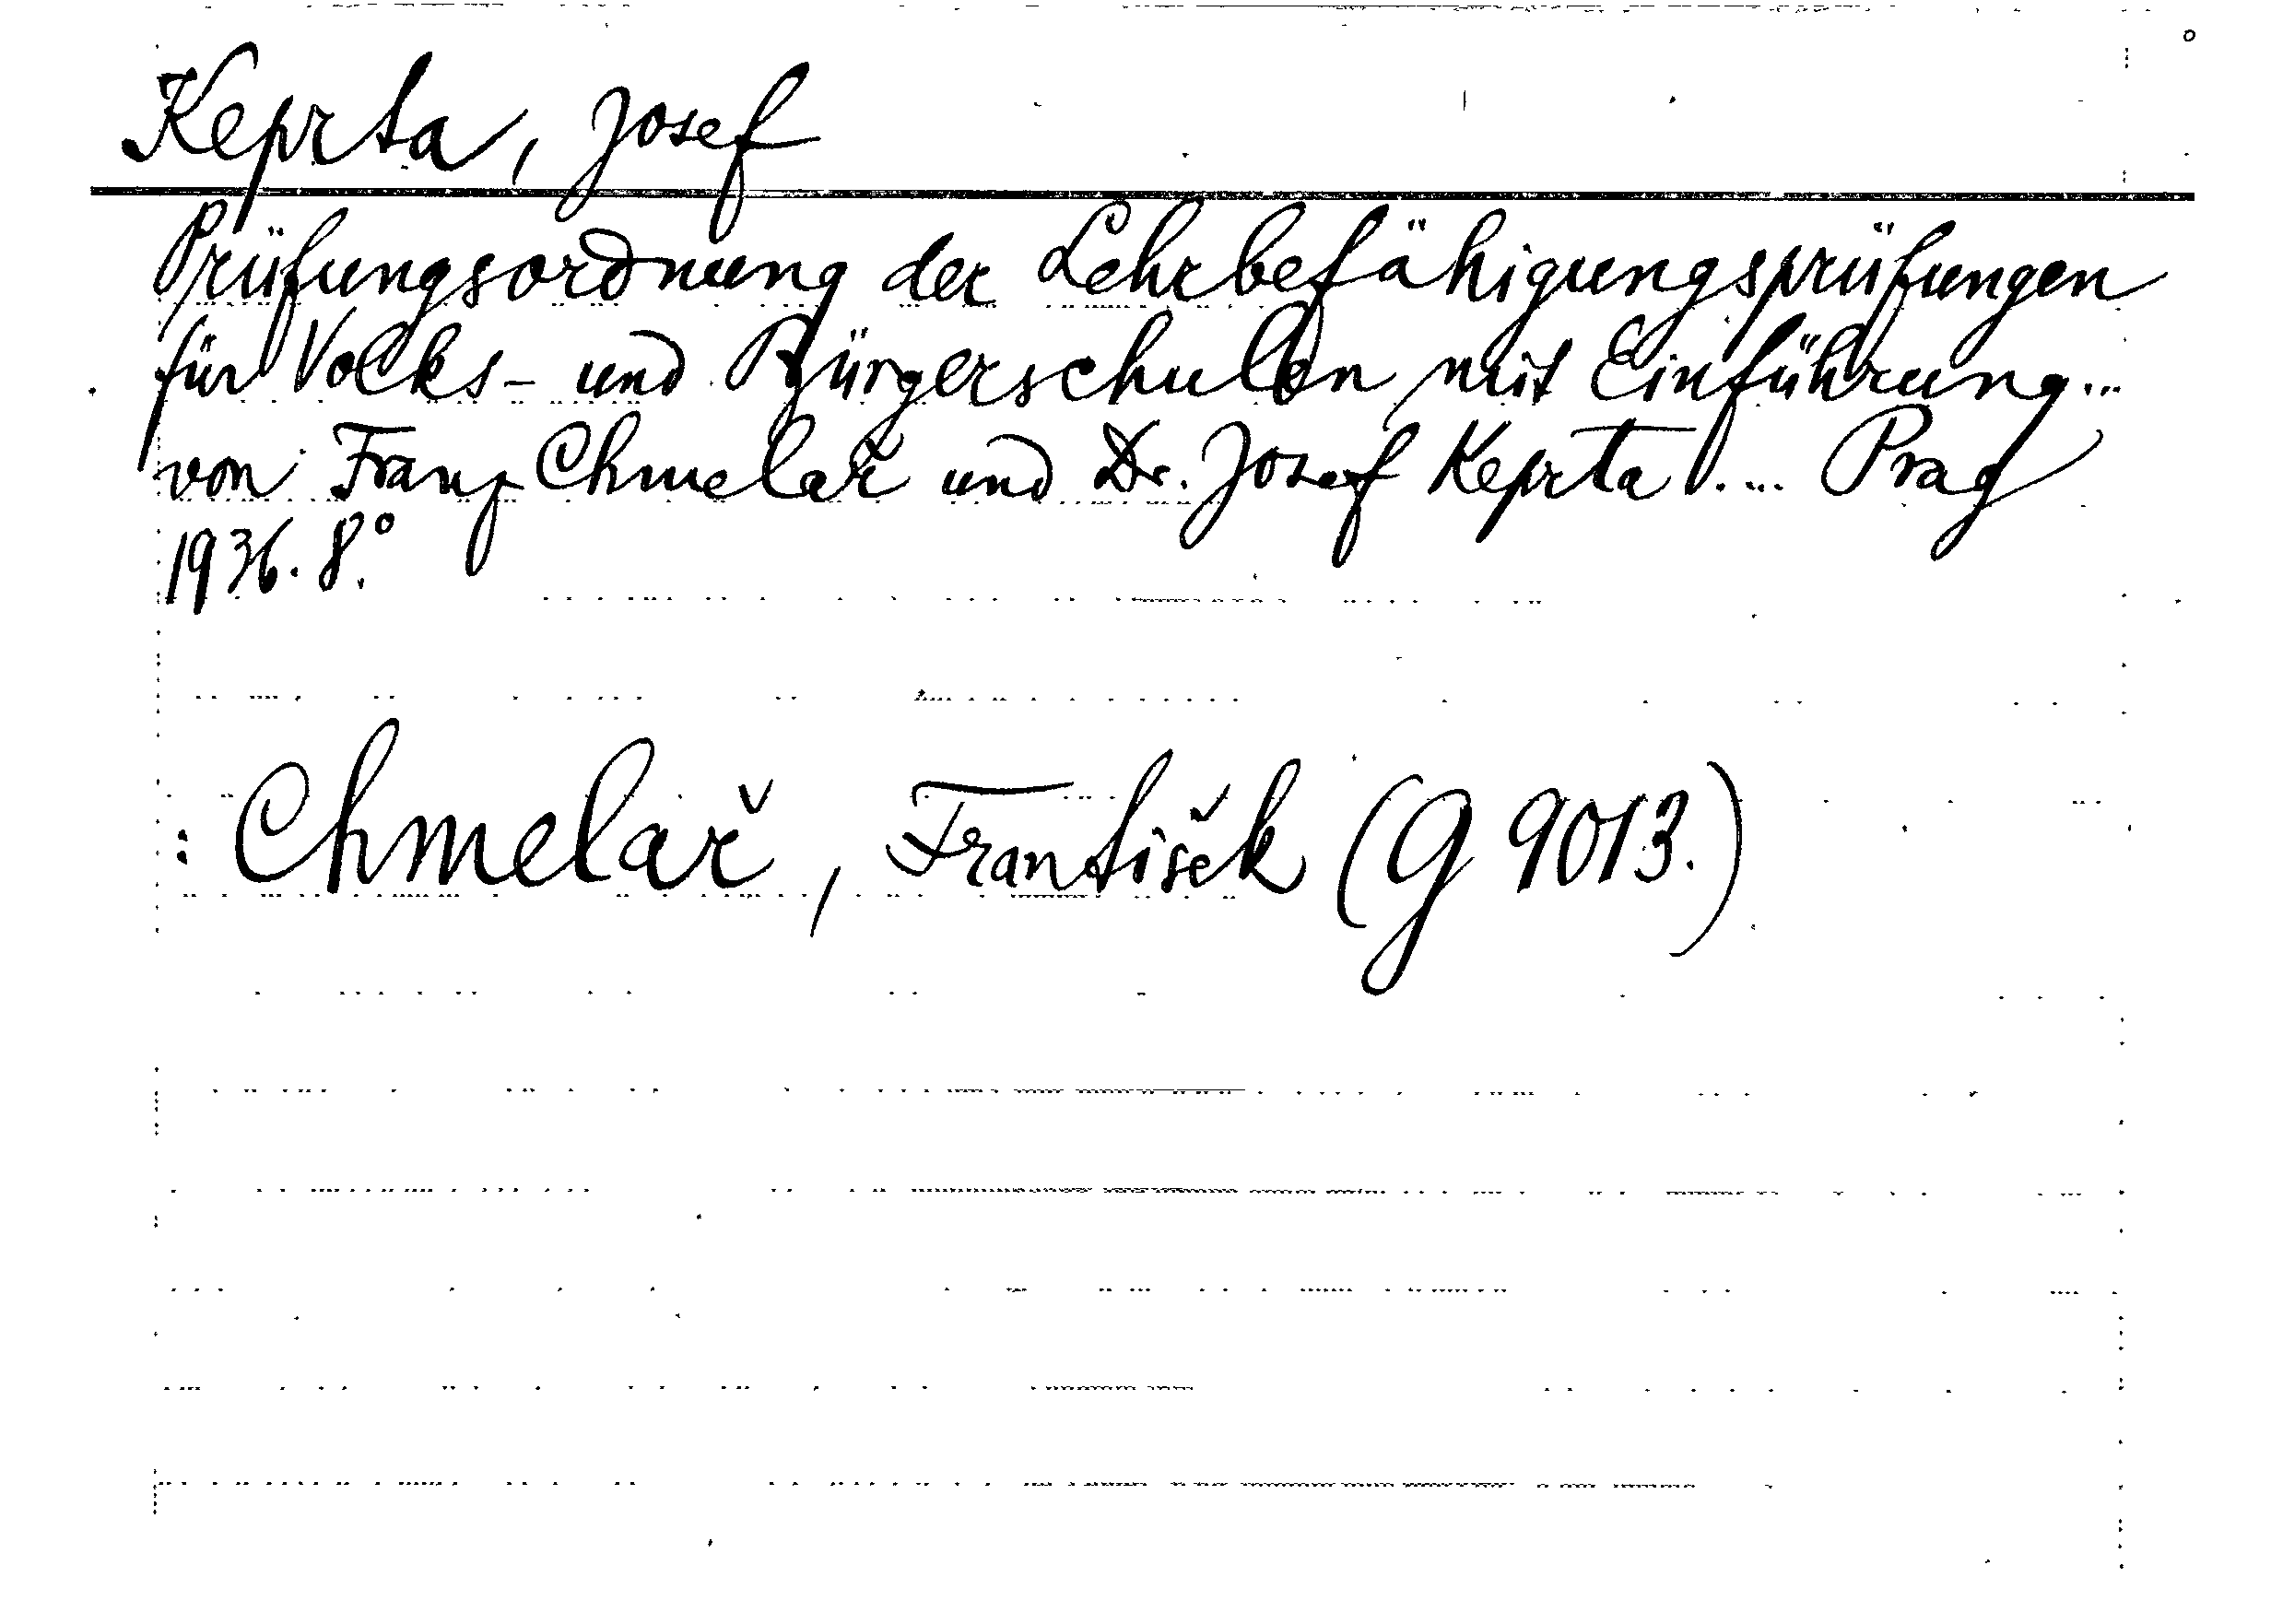 Keprta, Josef
Prüfungsordnung der Lehrbefähigungsprüfungen
für Volks- und Bürgerschulen mit Einführung...
von Franz Chmelař und Dr. Josef Keprta.... Prag
1936. 8.°
: Chmelař, František (G 9013.)